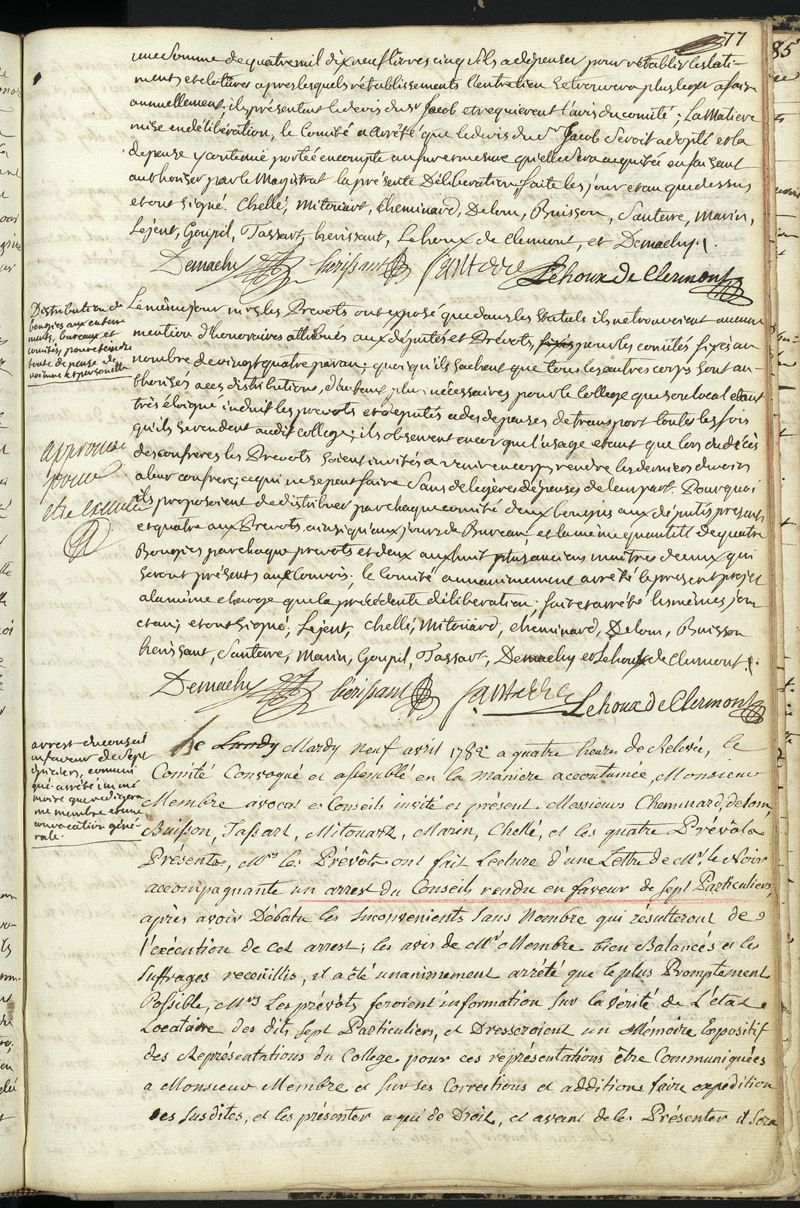 77
une Somme de quatre mil dix neuf livres cinq sols a dépenser pour rétablir les bati-
ments et clotures apres lesquels rétablissements l'entretien se trouvera plus leger a faire
annuellement, ils présentent le devis du Sr Jacob et requierent l'avis du comité; La Matiere
mise en délibération, le Comité a arrêté que le devis du Sr Jacob seroit adopté et la
depense y contenue portée en compte au fur et mesure qu'elle sera acquitée en faisant
authoriser par le Magistrat la présente Déliberation faite les jour et an que dessus
et ont signé. Chellé, Mitoüart, Cheminard, Delom, Buisson, Santerre, Marin,
Lejent, Goupil, Tassart, herissant, Lehoux de Clermont, et Demachy.
Demachy herissant Santerre Lehoux de Clermont
Distribution de
bougies aux enterre
ments, bureaux et
comités, pour etendre
toute depense de
voiture et personnelle
Le même jour mrs les Prevots ont exposé que dans les Statuts ils ne trouvoient aucune
mention d'honoraires attribués aux députés et Prévots, pour les comités fixés au
nombre de vingt quatre par an; quoiqu'ils sachent que tous les autres corps sont au-
thorisés a ces distributions, d'autant plus nécessaires pour le College que son local etant
très éloigné induit les prevots et deputés a des depenses de transport toutes les fois
qu'ils se rendent audit college; ils observent encor que l'usage etant que lors du décès
des confreres les Prevots soient invités a venir en corps rendre les derniers devoirs
a leur confrere, ce qui ne se peut faire sans de legères dépenses de leur part. Pourquoi
ils proposoient de distribuer par chaque comité deux bougies aux députés presents
et quatre aux Prevots, ainsi qu'aux jours de Bureau, et la même quantité de quatre
Bougies par chaque prevots et deux aux huit plus anciens maitres de ceux qui
seront présents aux Convois; le Comité a unanimement arrêté le present projet
a la même charge que la précédente déliberation; fait et arrêté les mêmes jour
et an; et ont signé, Lejent, Chellé, Mitoüard, Cheminard, Delom, Buisson
herissant, Santerre, Marin, Goupil, Tassart, Demachy et Lehoux de Clermont.
approuvé
pour
etre executé
Demachy herissant Santerre Lehoux de Clermont
arrest du conseil
en faveur de sept
epiciers, commni
qué. arrêté un mé
moire que redigera
me membre et une
convocation géné-
rale.
Le Lundy Mardy neuf avril 1782 a quatre heures de Relevée, le
Comité Convoqué et assemblé en la maniere accoutumée, Monsieur
Membre avocat es Conseils invité et présent. Messieurs Cheminard, delom,
Buisson, Tassart, Mitouart, Marin, Chellé, et les quatre Prévôts
Présents, Mrs les Prévôts ont fait Lecture d'une Lettre de Mr le Noir
accompagnante un arrest du Conseil rendu en faveur de sept Particuliers,
après avoir Débatu les Inconvenients sans Nombre qui résulteront de
l'exécution de cet arrest; les avis de Mr Membre bien Balancés et les
Suffrages receuillis, il a été unanimement arrêté que le plus Promptement
Possible, Mrs Les prévôts feroient information sur la vérité de L'état
Locataire des dits sept Particuliers, et Dresseroient un Mémoire Expositif
des Représentations du College pour ces représentations être Communiquées
a Monsieur Membre et sur ses Corrections et additions faire expédition
des susdites, et les présenter a qui de Droit, et avant de les Présenter il sera
85